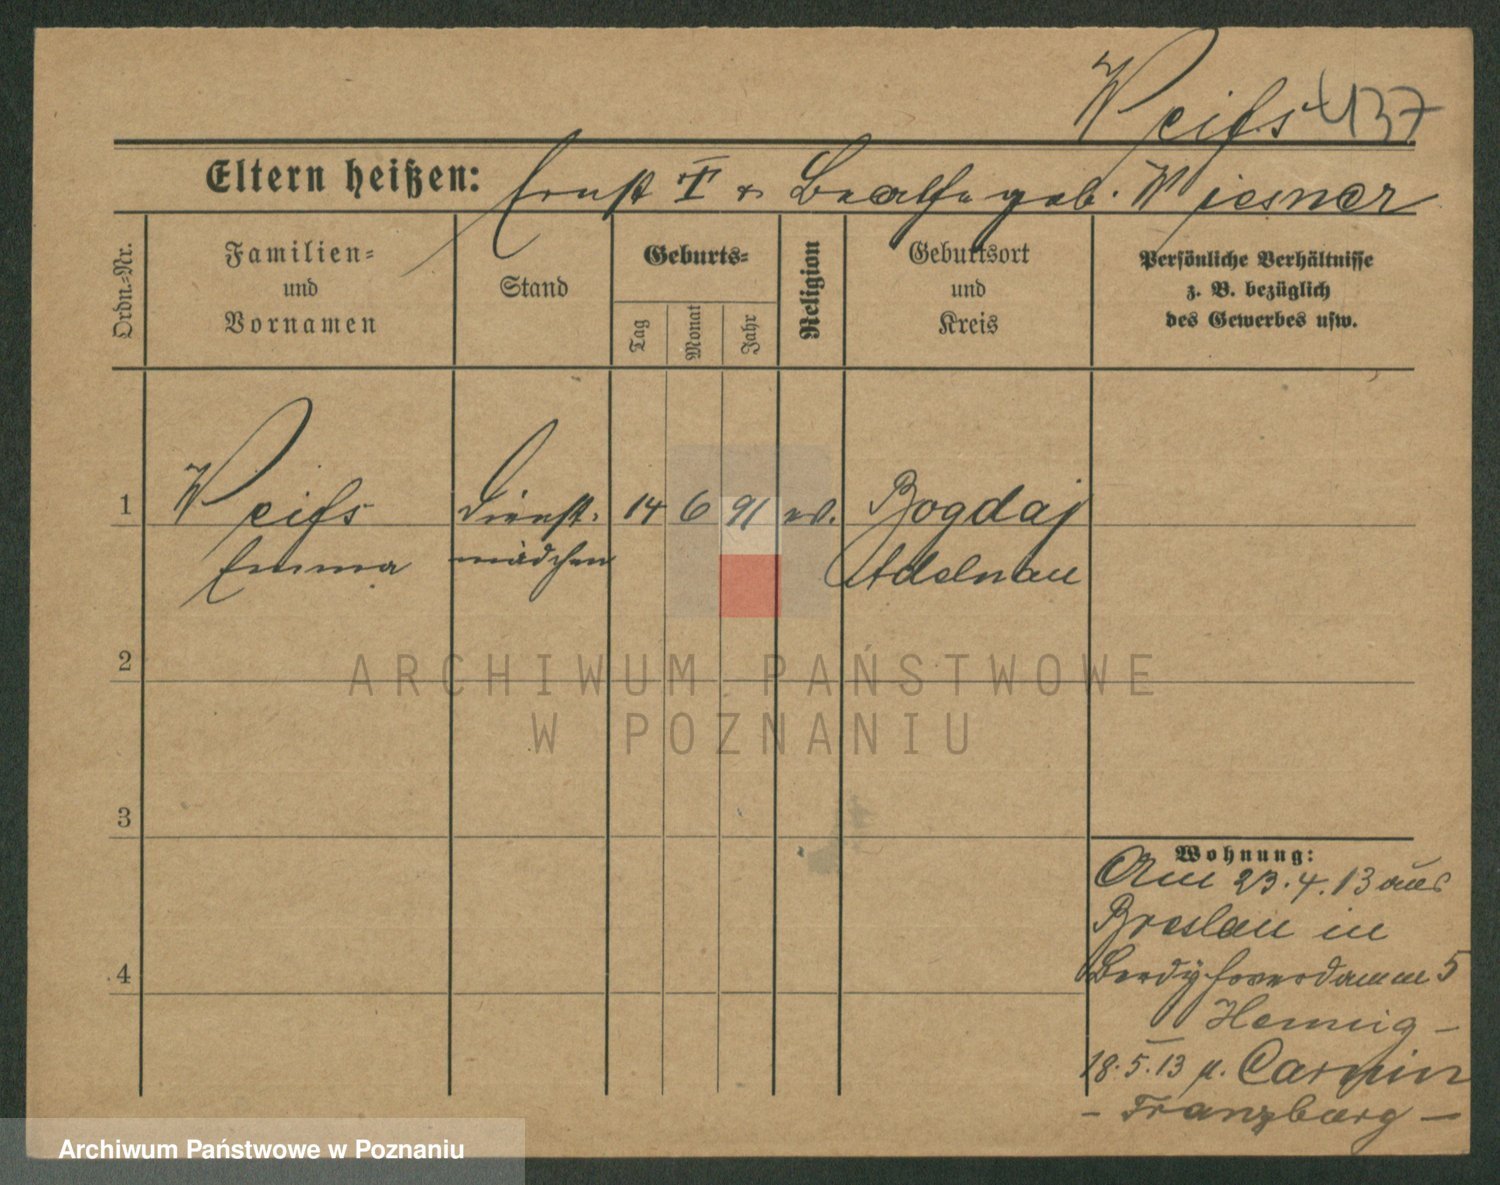 Weiß 437
Eltern heißen: Ernst † & Beate geb. Wiesner
Ordn.-Nr.
Familien-
und
Vornamen
Stand
Geburts-
Tag
Monat
Jahr
Religion
Geburtsort
und
Kreis
Persönliche Verhältnisse
z. B. bezüglich
des Gewerbes usw.
1 Weiß Dienst- 14 6 91 ev. Bogdaj
Emma mädchen Adelnau
2
3
4
Wohnung:
Am 23.4.13 aus
Breslau in
5
Hennig -
18.5.13 n. Carpin
- Franzburg -
ARCHIWUM PAŃSTWOWE
W POZNANIU
Archiwum Państwowe w Poznaniu